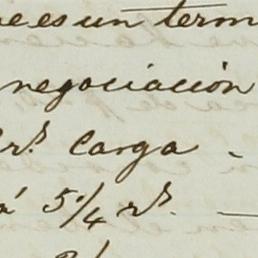 es un term
negociación
rs. Carga -
á 5 1/4 rs. —